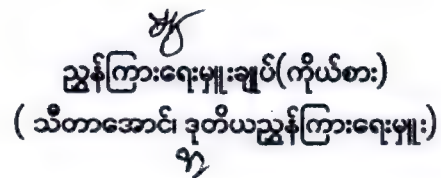 ညွှန်ကြားရေးမှူးချုပ်(ကိုယ်စား)
( သီတာအောင်၊ ဒုတိယညွှန်ကြားရေးမှူး)